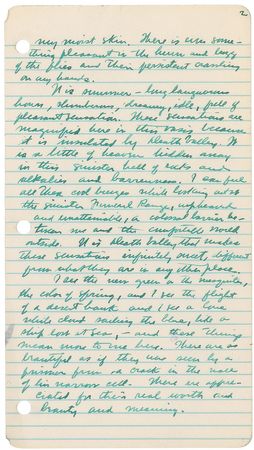 2
my moist skin. There is even some-
thing pleasant in the hum and buzz
of the flies and their persistent crawling
on my hands.
It is summer - long languorous
hours, slumberous, dreamy, idle, full of
pleasant sensation. These sensations are
magnified here in this oasis because
it is insulated by Death Valley. It
is a little of heaven hidden away
in this sinister hell of salts and
alkalies and barrenness. I can feel
all these cool breezes while looking across
the sinister Funeral Range, upheaved
and unattainable, a colossal barrier be-
tween me and the comfortable world
outside. It is Death Valley that makes
these sensations infinitely sweet, different
from what they are in any other place.
I see the new green on the mesquites,
the color of Spring, and I see the flight
of a desert hawk and I see a lone
white cloud sailing the blue, like a
ship lost at sea, - and these things
mean more to me here. These are as
beautiful as if they were seen by a
prisoner from a crack in the
of his narrow cell. These are appre-
ciated for their real worth and
beauty and meaning.